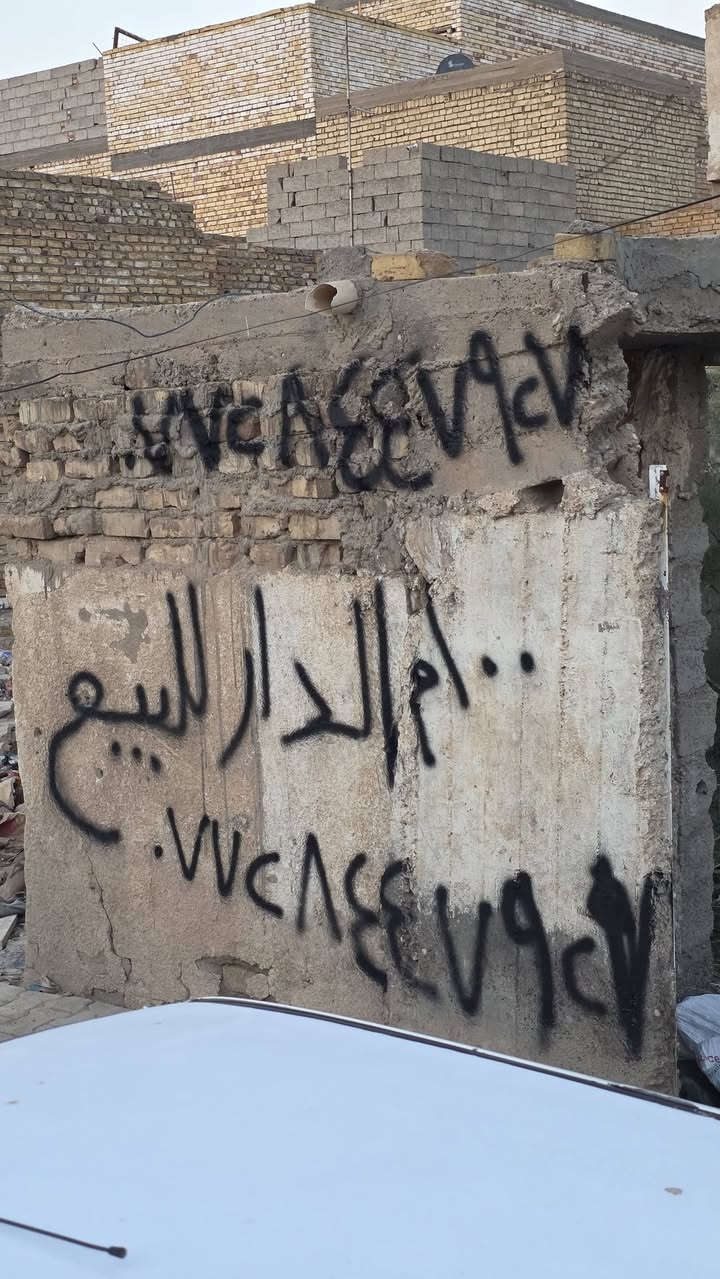 ٠٧٧٢٨٤٤٧٩٢٧
١٠٠م الدار للبيع
٠٧٧٢٨٤٤٧٩٢٧